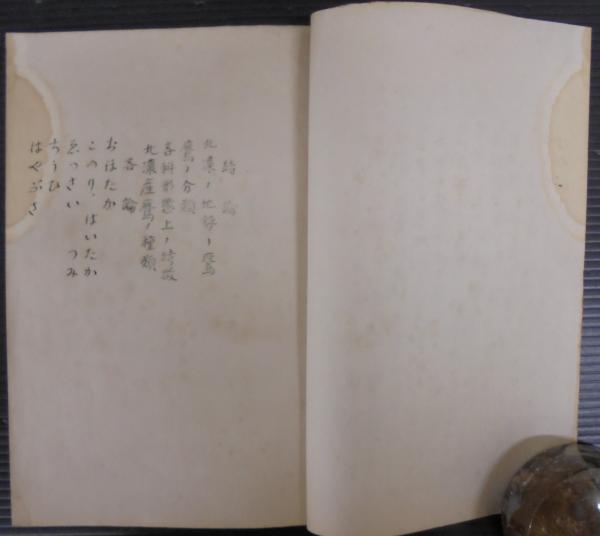 緒論
北濃ノ地貌ト鷹
鷹ノ分類
各科形態上ノ特徴
北濃産鷹ノ種類
各論
おほたか
このり、はいたか
ゑつさい つみ
ちうひ
はやぶさ